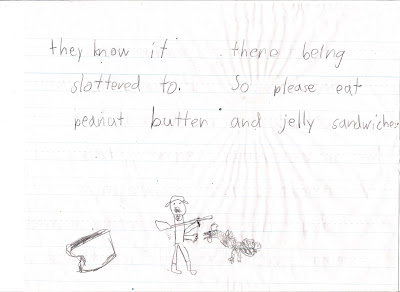 they know if there being
slottered to. So please eat
peanut butter and jelly sandwiches